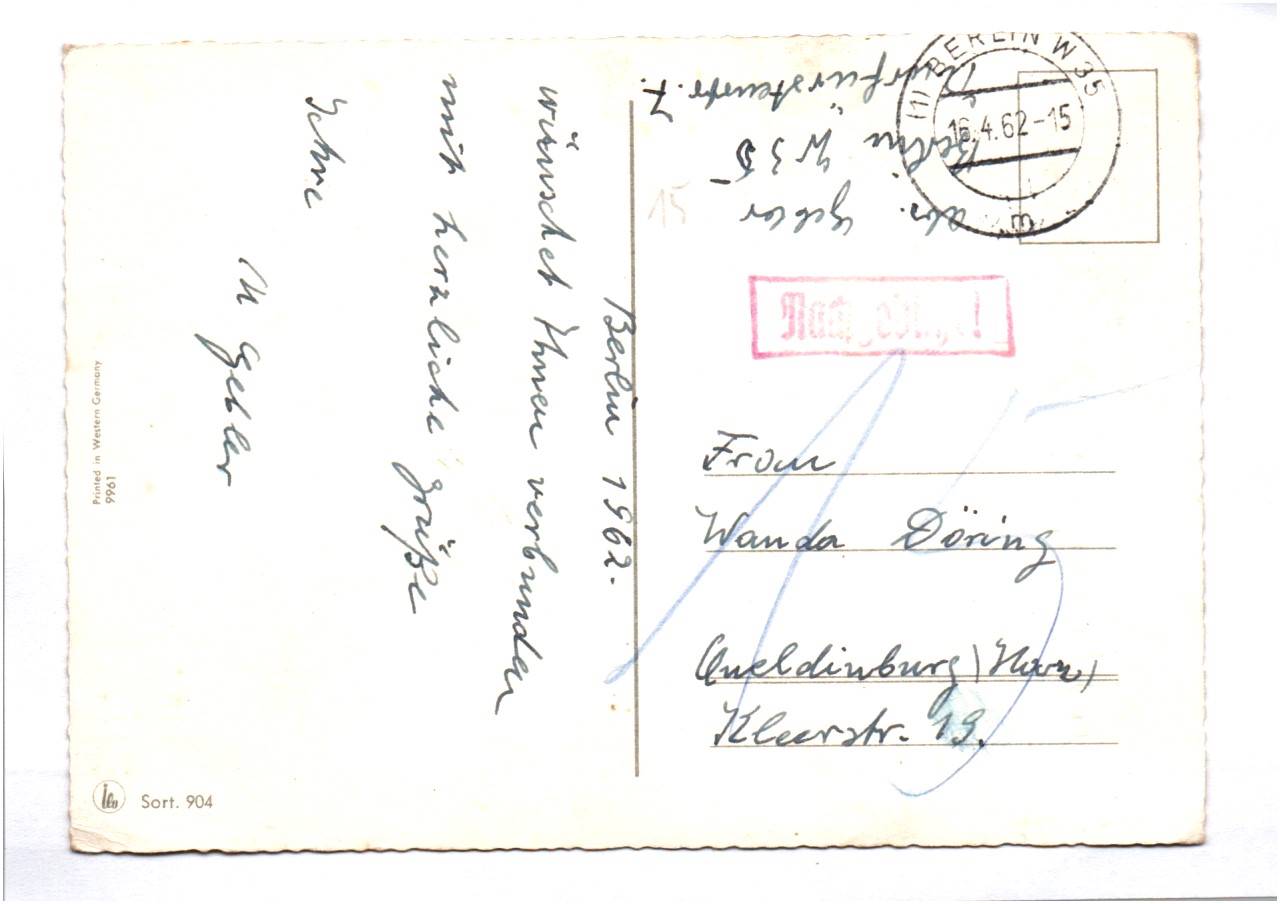 Berlin 1962.
wünschet Ihnen verbunden
mit herzliche Grüße
Ihre
M Gebler
Printed in Western Germany
9961
Sort. 904
(1) BERLIN W 35
16.4.62-15
m
Abs. Gebler
Berlin W 35
Kurfürstenstr. 7.
15
Frau
Wanda Döring
Quedlinburg (Harz)
19.